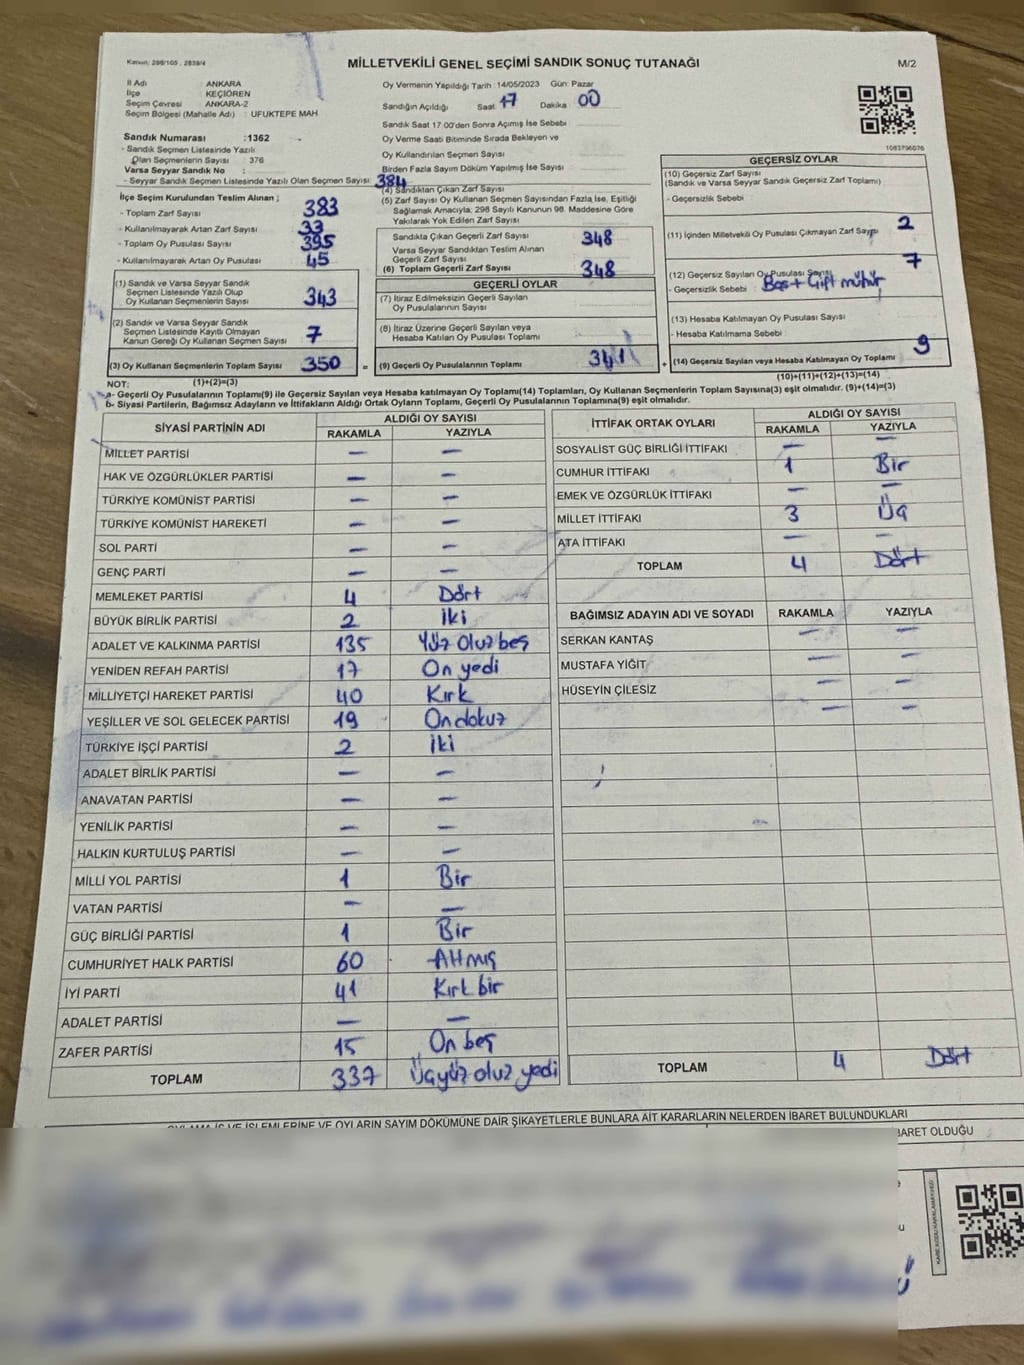 Kanun: 298/105 , 2839/4
MİLLETVEKİLİ GENEL SEÇİMİ SANDIK SONUÇ TUTANAĞI
M/2
İl Adı : ANKARA
İlçe : KEÇİÖREN
Seçim Çevresi : ANKARA-2
Seçim Bölgesi (Mahalle Adı) : UFUKTEPE MAH.
Oy Vermenin Yapıldığı Tarih : 14/05/2023 Gün: Pazar
Sandığın Açıldığı Saat 17 Dakika 00
Sandık Saat 17:00'den Sonra Açımış İse Sebebi :
Oy Verme Saati Bitiminde Sırada Bekleyen ve
Oy Kullandırılan Seçmen Sayısı
Birden Fazla Sayım Döküm Yapılmış İse Sayısı :
1083796076
Sandık Numarası : 1362
- Sandık Seçmen Listesinde Yazılı
Olan Seçmenlerin Sayısı : 376
Varsa Seyyar Sandık No :
- Seyyar Sandık Seçmen Listesinde Yazılı Olan Seçmen Sayısı :
384
İlçe Seçim Kurulundan Teslim Alınan ;
- Toplam Zarf Sayısı 383
- Kullanılmayarak Artan Zarf Sayısı 33
- Toplam Oy Pusulası Sayısı 395
- Kullanılmayarak Artan Oy Pusulası 45
(1) Sandık ve Varsa Seyyar Sandık
Seçmen Listesinde Yazılı Olup
Oy Kullanan Seçmenlerin Sayısı 343
(2) Sandık ve Varsa Seyyar Sandık
Seçmen Listesinde Kayıtlı Olmayan
Kanun Gereği Oy Kullanan Seçmen Sayısı 7
(3) Oy Kullanan Seçmenlerin Toplam Sayısı 350
(1)+(2)=(3)
(4) Sandıktan Çıkan Zarf Sayısı
(5) Zarf Sayısı Oy Kullanan Seçmen Sayısından Fazla İse, Eşitliği
Sağlamak Amacıyla, 298 Sayılı Kanunun 98. Maddesine Göre
Yakılarak Yok Edilen Zarf Sayısı
Sandıkta Çıkan Geçerli Zarf Sayısı 348
Varsa Seyyar Sandıktan Teslim Alınan
Geçerli Zarf Sayısı
(6) Toplam Geçerli Zarf Sayısı 348
GEÇERLİ OYLAR
(7) İtiraz Edilmeksizin Geçerli Sayılan
Oy Pusulalarının Sayısı
(8) İtiraz Üzerine Geçerli Sayılan veya
Hesaba Katılan Oy Pusulası Toplamı
= (9) Geçerli Oy Pusulalarının Toplamı 341
GEÇERSİZ OYLAR
(10) Geçersiz Zarf Sayısı
(Sandık ve Varsa Seyyar Sandık Geçersiz Zarf Toplamı)
- Geçersizlik Sebebi :
(11) İçinden Milletvekili Oy Pusulası Çıkmayan Zarf Sayısı 2
(12) Geçersiz Sayılan Oy Pusulası Sayısı 7
- Geçersizlik Sebebi : Boş + Çift mühür
(13) Hesaba Katılmayan Oy Pusulası Sayısı
- Hesaba Katılmama Sebebi :
+ (14) Geçersiz Sayılan veya Hesaba Katılmayan Oy Toplamı 9
(10)+(11)+(12)+(13)=(14)
NOT:
a- Geçerli Oy Pusulalarının Toplamı(9) ile Geçersiz Sayılan veya Hesaba katılmayan Oy Toplamı(14) Toplamları, Oy Kullanan Seçmenlerin Toplam Sayısına(3) eşit olmalıdır. (9)+(14)=(3)
b- Siyasi Partilerin, Bağımsız Adayların ve İttifakların Aldığı Ortak Oyların Toplamı, Geçerli Oy Pusulalarının Toplamına(9) eşit olmalıdır.
SİYASİ PARTİNİN ADI ALDIĞI OY SAYISI
RAKAMLA YAZIYLA
MİLLET PARTİSİ – –
HAK VE ÖZGÜRLÜKLER PARTİSİ – –
TÜRKİYE KOMÜNİST PARTİSİ – –
TÜRKİYE KOMÜNİST HAREKETİ – –
SOL PARTİ – –
GENÇ PARTİ – –
MEMLEKET PARTİSİ 4 Dört
BÜYÜK BİRLİK PARTİSİ 2 İki
ADALET VE KALKINMA PARTİSİ 135 Yüz Otuz beş
YENİDEN REFAH PARTİSİ 17 On yedi
MİLLİYETÇİ HAREKET PARTİSİ 40 Kırk
YEŞİLLER VE SOL GELECEK PARTİSİ 19 Ondokuz
TÜRKİYE İŞÇİ PARTİSİ 2 İki
ADALET BİRLİK PARTİSİ – –
ANAVATAN PARTİSİ – –
YENİLİK PARTİSİ – –
HALKIN KURTULUŞ PARTİSİ – –
MİLLİ YOL PARTİSİ 1 Bir
VATAN PARTİSİ – –
GÜÇ BİRLİĞİ PARTİSİ 1 Bir
CUMHURİYET HALK PARTİSİ 60 Altmış
İYİ PARTİ 41 Kırk bir
ADALET PARTİSİ – –
ZAFER PARTİSİ 15 On beş
TOPLAM 337 Üçyüz otuz yedi
İTTİFAK ORTAK OYLARI ALDIĞI OY SAYISI
RAKAMLA YAZIYLA
SOSYALİST GÜÇ BİRLİĞİ İTTİFAKI – –
CUMHUR İTTİFAKI 1 Bir
EMEK VE ÖZGÜRLÜK İTTİFAKI – –
MİLLET İTTİFAKI 3 Üç
ATA İTTİFAKI – –
TOPLAM 4 Dört
BAĞIMSIZ ADAYIN ADI VE SOYADI RAKAMLA YAZIYLA
SERKAN KANTAŞ – –
MUSTAFA YİĞİT – –
HÜSEYİN ÇİLESİZ – –
– –
TOPLAM 4 Dört
İŞLEMLERİNE VE OYLARIN SAYIM DÖKÜMÜNE DAİR ŞİKAYETLERLE BUNLARA AİT KARARLARIN NELERDEN İBARET BULUNDUKLARI
BARET OLDUĞU